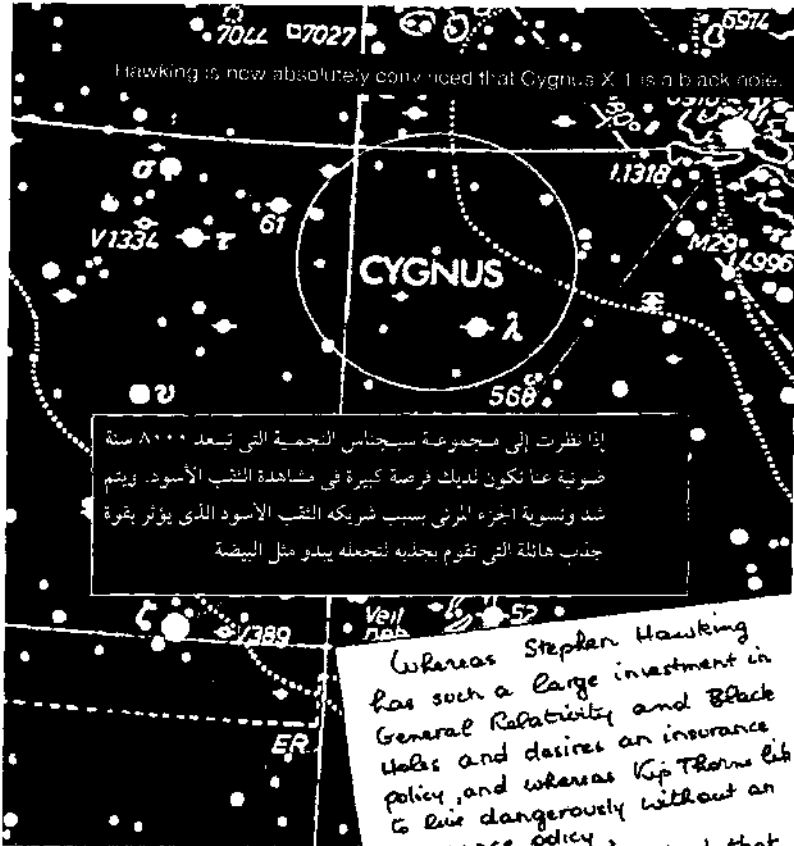 7044 7027 6914
Hawking is now absolutely convinced that Cygnus X-1 is a black hole.
σ 61 I.1318
V1334 τ M29 I.4996
CYGNUS
λ
υ 568
إذا نظرت إلى مجموعة سيجناس النجمية التي تبعد ٨٠٠٠ سنة
ضوئية عنا تكون لديك فرصة كبيرة في مشاهدة الثقب الأسود. ويتم
شد وتسوية الجزء المرئى بسبب شريكه الثقب الأسود الذى يؤثر بقوة
جذب هائلة التى تقوم بجذبه لتجعله يبدو مثل البيضة
ζ V389 Veil 52
ER
Whereas Stephen Hawking
has such a large investment in
General Relativity and Black
Holes and desires an insurance
policy, and whereas Kip Thorne
to live dangerously without an
policy
that